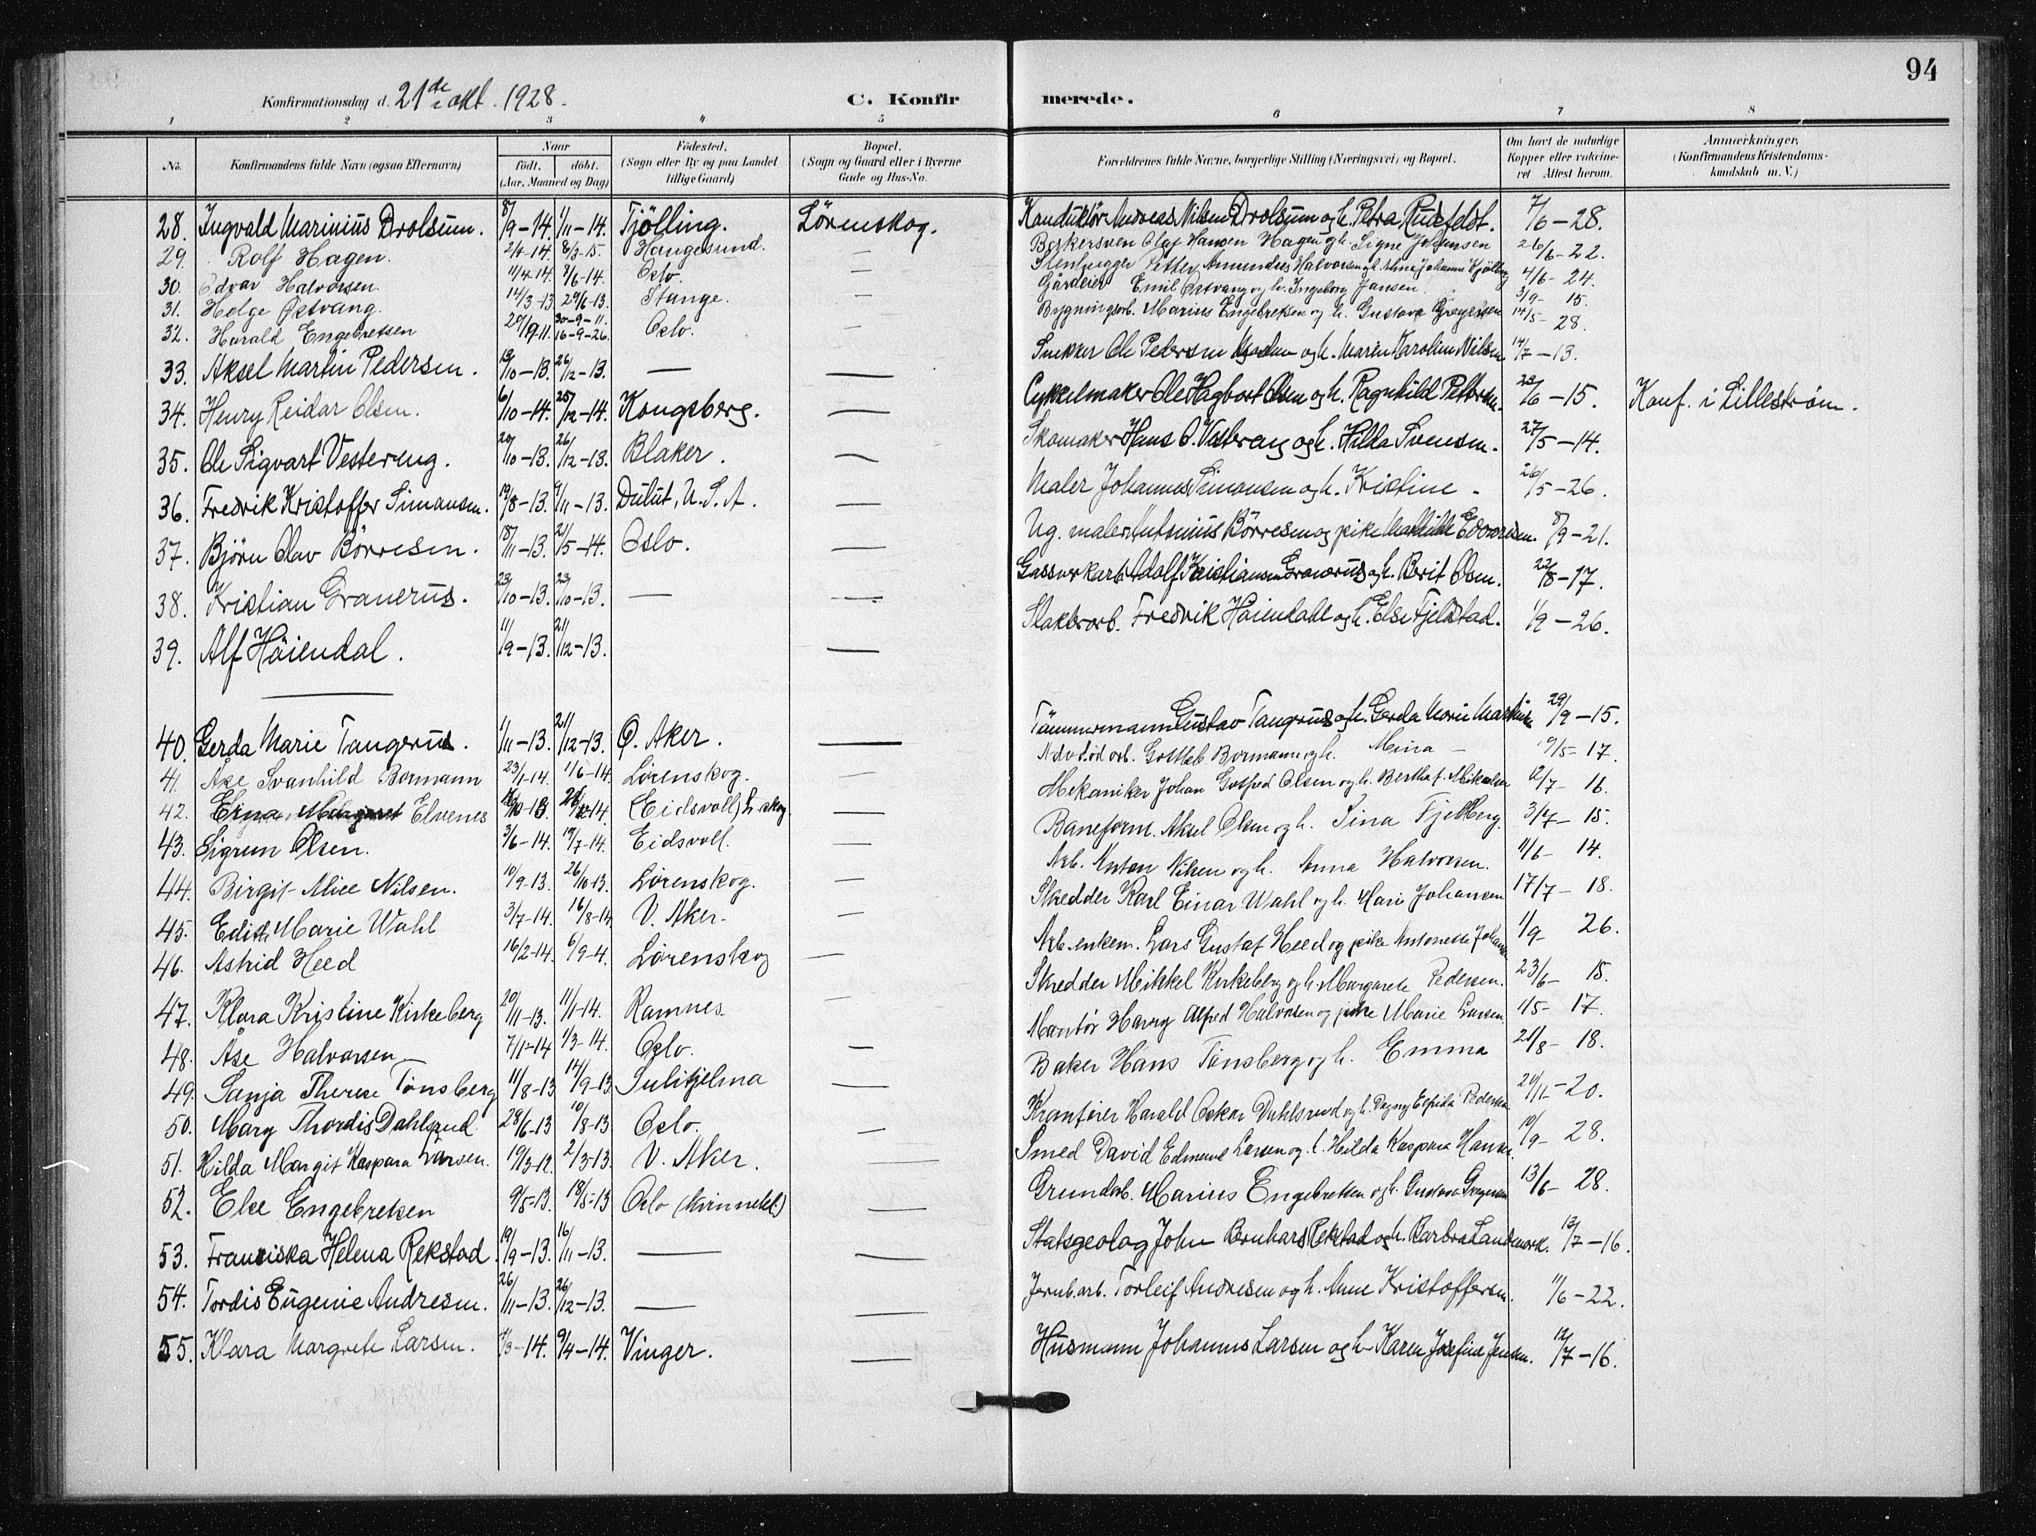 94
Konfirmationsdag d. 21de okt. 1928.
C. Konfirmerede.
1 2 3 4 5 6 7 8
No. Konfirmandens fulde Navn (ogsaa Efternavn) Naar født. døbt. (Aar, Maaned og Dag) Fødested. (Sogn eller By og paa Landet tillige Gaard) Bopæl. (Sogn og Gaard eller i Byerne Gade og Hus-No. Forældrenes fulde Navne, borgerlige Stilling (Næringsvei) og Bopæl. Om havt de naturlige Kopper eller vaccineret Attest herom. Anmærkninger. (Konfirmandens Kristendomskundskab m. V.)
28. Ingvald Marinius Drolsum. 8/9-14. 1/11-14. Tjölling. Lørenskog. Konduktör Andreas Nilsen Drolsum og h. Petra Rudsfeldt. 7/6-28.
29. Rolf Hagen. 2/4-14. 8/3-15. Haugesund. — Bakersven Olaf Hansen Hagen og h. Signe Johansen 26/6-22.
30. Edvar Halvorsen. 11/4-14. 7/6-14. Oslo. — Stenhugger Petter Amundus Halvorsen og h. Anna Johanne 4/6-24.
31. Helge Østvang. 14/3-13. 29/6-13. Stange. — Gårdeier Emil Østvang og h. Ingeborg Jansen. 3/9-15.
32. Harald Engebretsen 20/9 11. 30-9-11. 16-9-26. Oslo. — Bygningsarb. Marius Engebretsen og h. Gustava Gregersen 14/5-28.
33. Aksel Martin Pedersen. 13/10-13. 26/12-13. — — Snekker Ole Pedersen og h. Maren Karoline Nilsen 14/7-13.
34. Henry Reidar Olsen. 6/10-14. 25/12-14. Kongsberg. — Cykkelmaker Ole Hagbart Olsen og h. Ragnhild Pettersen. 23/6-15. Konf. i Lillestrøm.
35. Ole Sigvart Vestereng. 20/10-13. 26/12-13. Blaker. — Skomaker Hans O. Vestereng og h. Hilda Svensen. 27/5-14.
36. Fredrik Kristoffer Simonsen. 19/8-13. 9/11-13. Dulut, U.S.A. — Maler Johannes Simonsen og h. Kristine - 26/5-26.
37. Bjørn Olav Børresen. 18/11-13. 21/5-14. Oslo. — Ug. maler Børresen og pike Mathilde Edvardsen. 8/9-21.
38. Kristian Granerus. 23/10-13. 23/10-13. — — Gassverkarb. Adolf Kristiansen Granerus og h. Berit Olsen. 22/8-17.
39. Alf Høiendal. 11/9-13. 21/12-13. — Fredrik Høiendahl og h. Else Fjeldstad. 1/9-26.
40. Gerda Marie Tangerus. 1/11-13. 21/12-13. Ø. Aker. — Tömmermann Gustav Tangerus og h. Gerda Marie 29/9-15.
41. Åse Svanhild Bormann 23/1-14. 1/6-14. Lørenskog. — Gottlieb Bormann og h. Mina — 9/5-17.
42. Erna Margaret Elvenes (Eidsvoll) L-skog — Mekaniker Johan Gotfred Olsen og h. Bertha f. Mikalsen 12/7-16.
43. Sigrun Olsen. 3/6-14. 19/7-14. Eidsvoll. — Baneform. Aksel Olsen og h. Sina Fjeldberg. 3/7-15.
44. Birgit Alice Nilsen. 10/9-13. 26/10-13. Lørenskog. — Arb. Anton Nilsen og h. Anna Halvorsen. 11/6-14.
45. Edith Marie Wahl 3/7-14. 16/8-14 V. Aker. — Skredder Karl Einar Wahl og h. Mari Johansen 17/7-18.
46. Astrid Heed 16/2-14. 6/9-4. Lørenskog — Arb. enkem. Lars Gustaf Heed og pike Antonette 1/9-26.
47. Klara Kristine Kirkeberg 20/11-13. 11/1-14. Ramnes. — Skredder Mikkel Kirkeberg og h. Margarete Pedersen. 23/6-15.
48. Åse Halvorsen 7/1-14 1/3-14. Oslo. — Montør Harry Alfred Halvorsen og pike Marie Larsen. 1/5-17.
49. Sanja Therese Tønsberg 11/8-13 14/9-13. Sulitjelma — Baker Hans Tønsberg og h. Emma 21/8-18.
50. Mary Thordis Dahlsrud 28/6-13 10/8-13. Oslo. — Kranfører Harald Oskar Dahlsrud og h. Dagny Pedersen 29/11-20.
51. Hilda Margit Kaspara Larsen. 19/3-12. 2/3-13. V. Aker. — Smed David Edmund Larsen og h. Hilda Kaspara Hansen 19/9-28.
52. Else Engebretsen 9/5-13. 18/5-13 Oslo (kvinnekl.) — Grundarb. Marius Engebretsen og h. Gustava Gregersen 13/6-28.
53. Franciska Helena Rekstad. 19/9-13. 16/11-13. — — Statsgeolog John Bernhard Rekstad og h. Barbra Landmark. 13/7-16.
54. Tordis Eugenie Andresen. 26/11-13. 26/12-13. — — Jernb.arb. Torleif Andresen og h. Anne Kristoffersen. 11/6-22.
55. Klara Margrete Larsen. 1/3-14. 9/4-14. Vinger. — Husmann Johannes Larsen og h. Karen Josefine Jensen. 12/7-16.